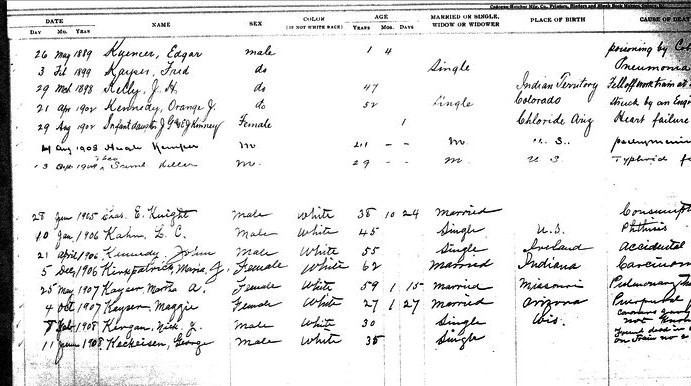 DATE NAME SEX COLOR AGE MARRIED OR SINGLE, PLACE OF BIRTH CAUSE OF DEA
DAY MO. YEAR (IF NOT WHITE RACE) YEARS MOS. DAYS WIDOW OR WIDOWER
26 May 1889 Kuencer, Edgar male 1 4 poisoning by
3 Feb 1899 Kayser, Fred do Single Pneumonia
29 Mch 1898 Kelly, J. H. do 47 Indian Territory Fell off work train at
21 Apr 1902 Kennedy, Orange J. do 52 Single Colorado Struck by an Engi
29 Aug 1902 Infant daughter Kinney Female 1 Chloride Ariz Heart failure
4 Aug 1908 Hugh Kemper m - - m U. S.
13 Sept Keller M. 29 - - m. U S Typhoid f
28 1905 Chas. E. Knight male White 38 10 24 married Consumpt
10 Jan. 1906 Kahn, L. C. male White 45 Single U.S. Phthisis
21 April 1906 Kennedy, John Male White 55 Single Ireland Accidental
5 Dec 1906 Kirkpatrick, Maria J. Female White 62 married Indiana Carcinom
25 May 1907 Kayser, Martha A. Female White 59 1 15 married Missouri Pulmonary
4 Oct 1907 Keyser, Maggie Female White 27 1 27 married Arizona Puerperal
8 Feb 1908 Kerzan, Nick, J. male White 30 Single Wis.
11 June 1908 Keckeisen, George male White 35 Single on Train no 2